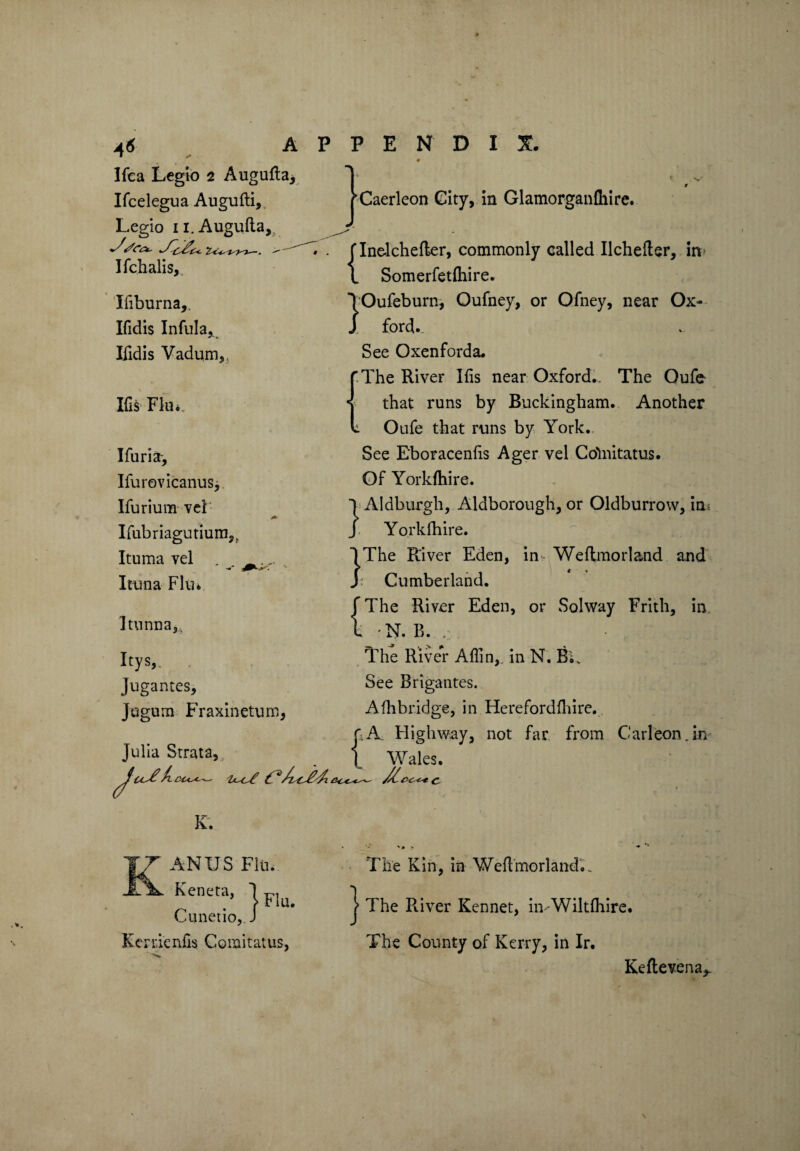 46 APPENDIX.
Iſca Legio 2 Auguſta,
Iſcelegua Auguſti,
Legio 11. Auguſta,
} Caerleon City, in Glamorganſhire.
Iſchalis, { Inelcheſter, commonly called Ilcheſter, in
Somerſetſhire.
Iſiburna,
Iſidis Inſula,
} Ouſeburn, Ouſney, or Oſney, near Ox-
ford.
Iſidis Vadum, See Oxenforda.
Iſis Flu. { The River Iſis near Oxford. The Ouſe
that runs by Buckingham. Another
Ouſe that runs by York.
Iſuria, See Eboracenſis Ager vel Comitatus.
Iſurovicanus, Of Yorkſhire.
Iſurium vel
Iſubriagutium,
} Aldburgh, Aldborough, or Oldburrow, in
Yorkſhire.
Ituma vel
Ituna Flu.
} The River Eden, in Weſtmorland and
Cumberland.
Itunna, { The River Eden, or Solway Frith, in
N. B.
Itys, The River Aſſin, in N. B.
Jugantes, See Brigantes.
Jugum Fraxinetum, Aſhbridge, in Herefordſhire.
Julia Strata, { A Highway, not far from Carleon in
Wales.
K.
KANUS Flu. The Kin, in Weſtmorland.
Keneta,
Cunetio,
} Flu. } The River Kennet, in Wiltſhire.
Kerrienſis Comitatus, The County of Kerry, in Ir.
Keſtevena,